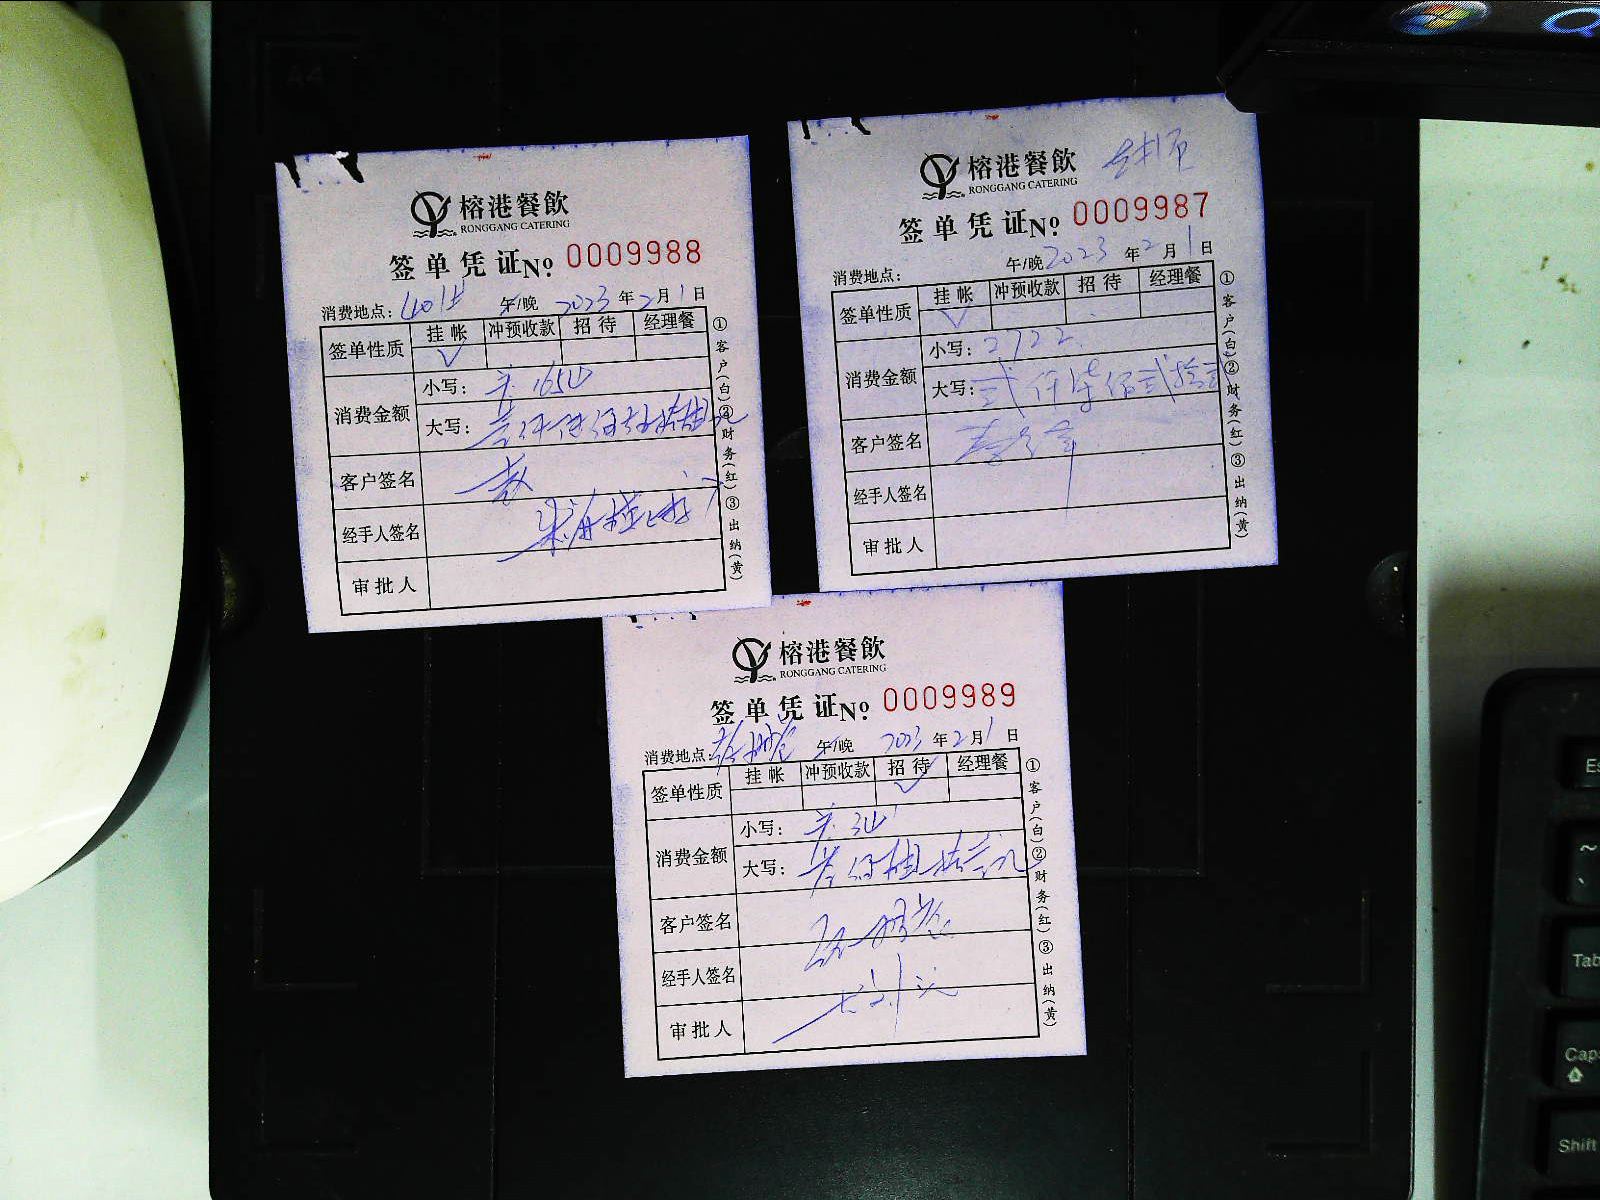 榕港餐飲
RONGGANG CATERING
签单凭证№ 0009988
消费地点： 午/晚 2023年2月1日
签单性质 挂帐 冲预收款 招待 经理餐
✓
消费金额
小写：
大写：
客户签名
经手人签名
审批人
①客户(白)②财务(红)③出纳(黄)
榕港餐飲
RONGGANG CATERING
签单凭证№ 0009987
消费地点： 午/晚 2023年2月1日
签单性质 挂帐 冲预收款 招待 经理餐
✓
消费金额
小写：2722
大写：弍仟柒佰弍拾弍
客户签名
经手人签名
审批人
①客户(白)②财务(红)③出纳(黄)
榕港餐飲
RONGGANG CATERING
签单凭证№ 0009989
消费地点： 午/晚 2023年2月1日
签单性质 挂帐 冲预收款 招待 经理餐
✓
消费金额
小写：
大写：
客户签名
经手人签名
审批人
①客户(白)②财务(红)③出纳(黄)
A4
Es
~
Tab
Caps
Shift